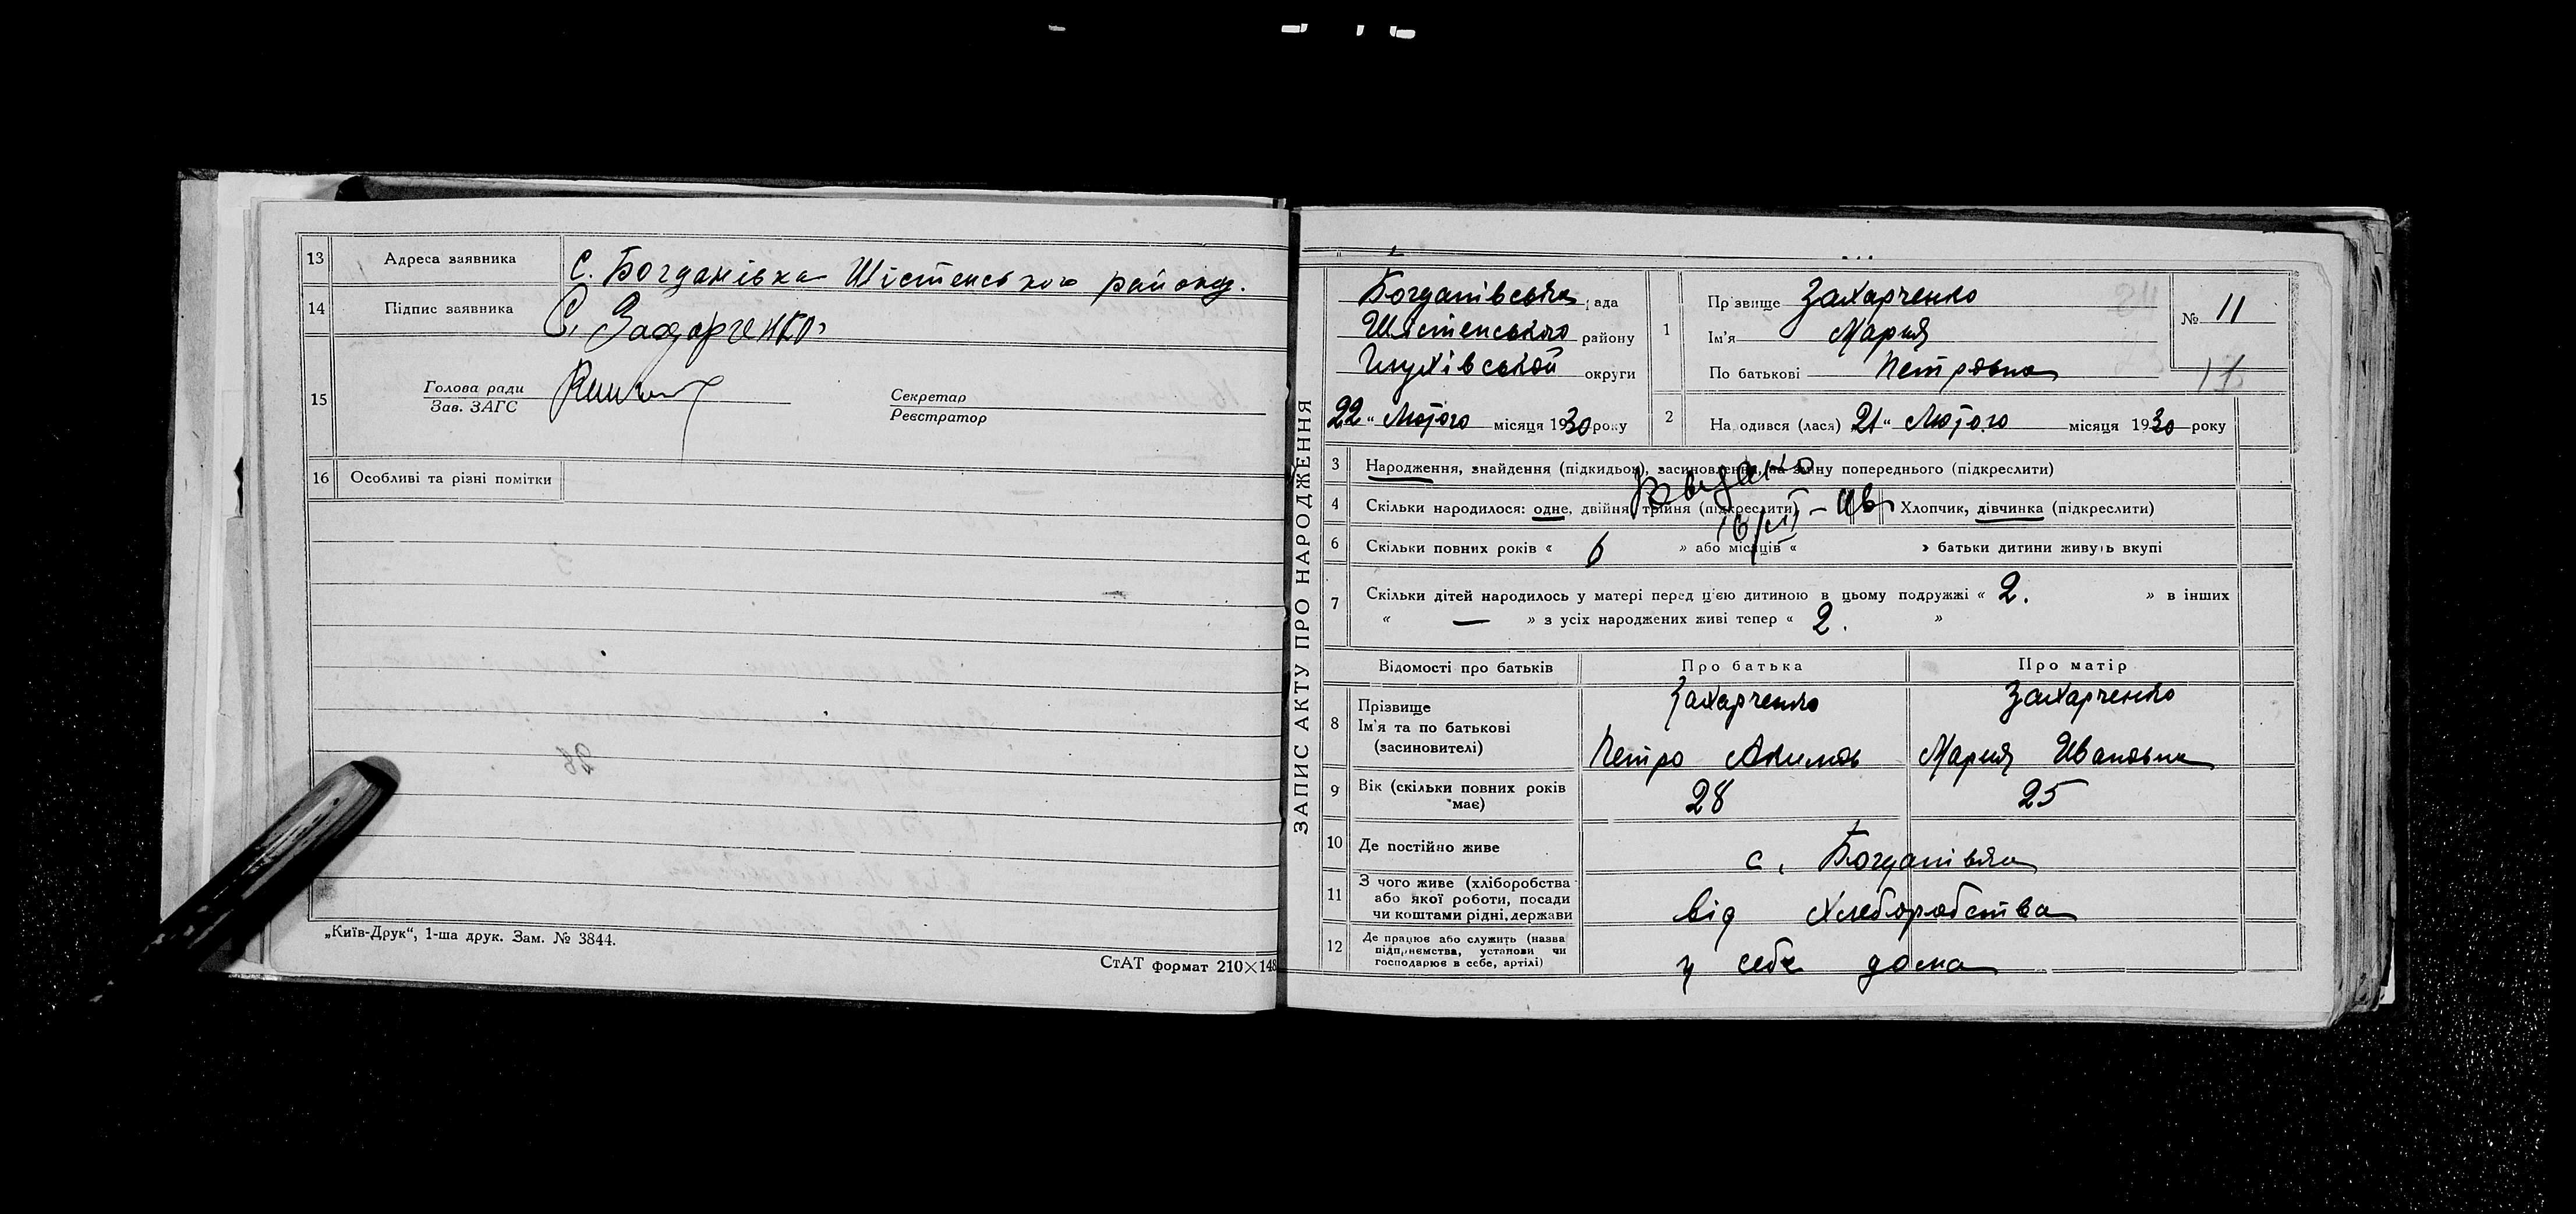 13 Адреса заявника С. Богданівка Шістенського району.
14 Підпис заявника С. Захарченко
15 Голова ради
Зав. ЗАГС
Секретар
Реєстратор
16 Особливі та різні помітки
„Київ-Друк“, 1-ша друк. Зам. № 3844.
СтАТ формат 210×148
ЗАПИС АКТУ ПРО НАРОДЖЕННЯ
Богданівська рада
Шістенського району
Глухівської округи
22 “ Лютого місяця 1930 року
1 Прізвище Захарченко
Ім'я Мария
По батькові Петровна
№ 11
2 Народився (лася) 21 “ Лютого місяця 1930 року
3 Народження, знайдення (підкидьок), засиновлення, на зміну попереднього (підкреслити)
4 Скільки народилося: одне, двійня, трійня (підкреслити) Хлопчик, дівчинка (підкреслити)
6 Скільки повних років « 6 » або місяців « » батьки дитини живуть вкупі
7 Скільки дітей народилось у матері перед ц'єю дитиною в цьому подружжі « 2. » в інших
« — » з усіх народжених живі тепер « 2. »
Відомості про батьків Про батька Про матір
8 Прізвище
Ім'я та по батькові
(засиновителі)
Захарченко
Петро Акимов
Захарченко
Мария Ивановна
9 Вік (скільки повних років має) 28 25
10 Де постійно живе с. Богданівка
11 З чого живе (хліборобства
або якої роботи, посади
чи коштами рідні, держави
від Хлеборобства
12 Де працює або служить (назва
підприємства, установи чи
господарює в себе, артілі)
у себе дома